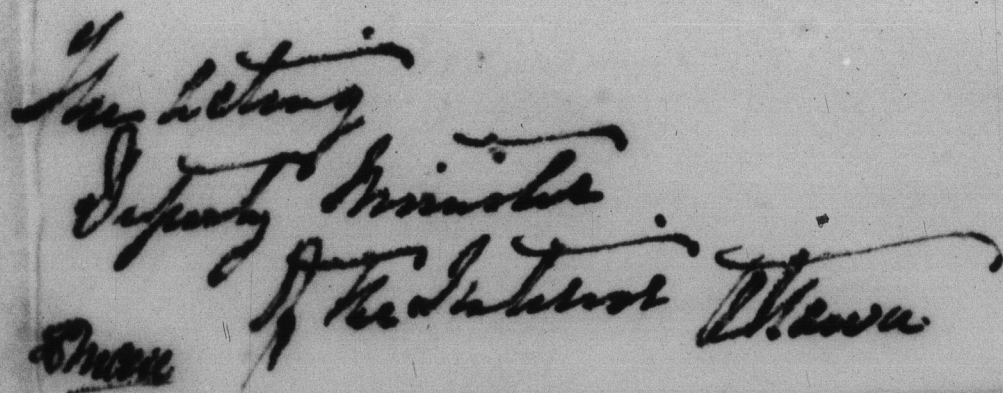 The Acting
Deputy Minister
of the Interior Ottawa